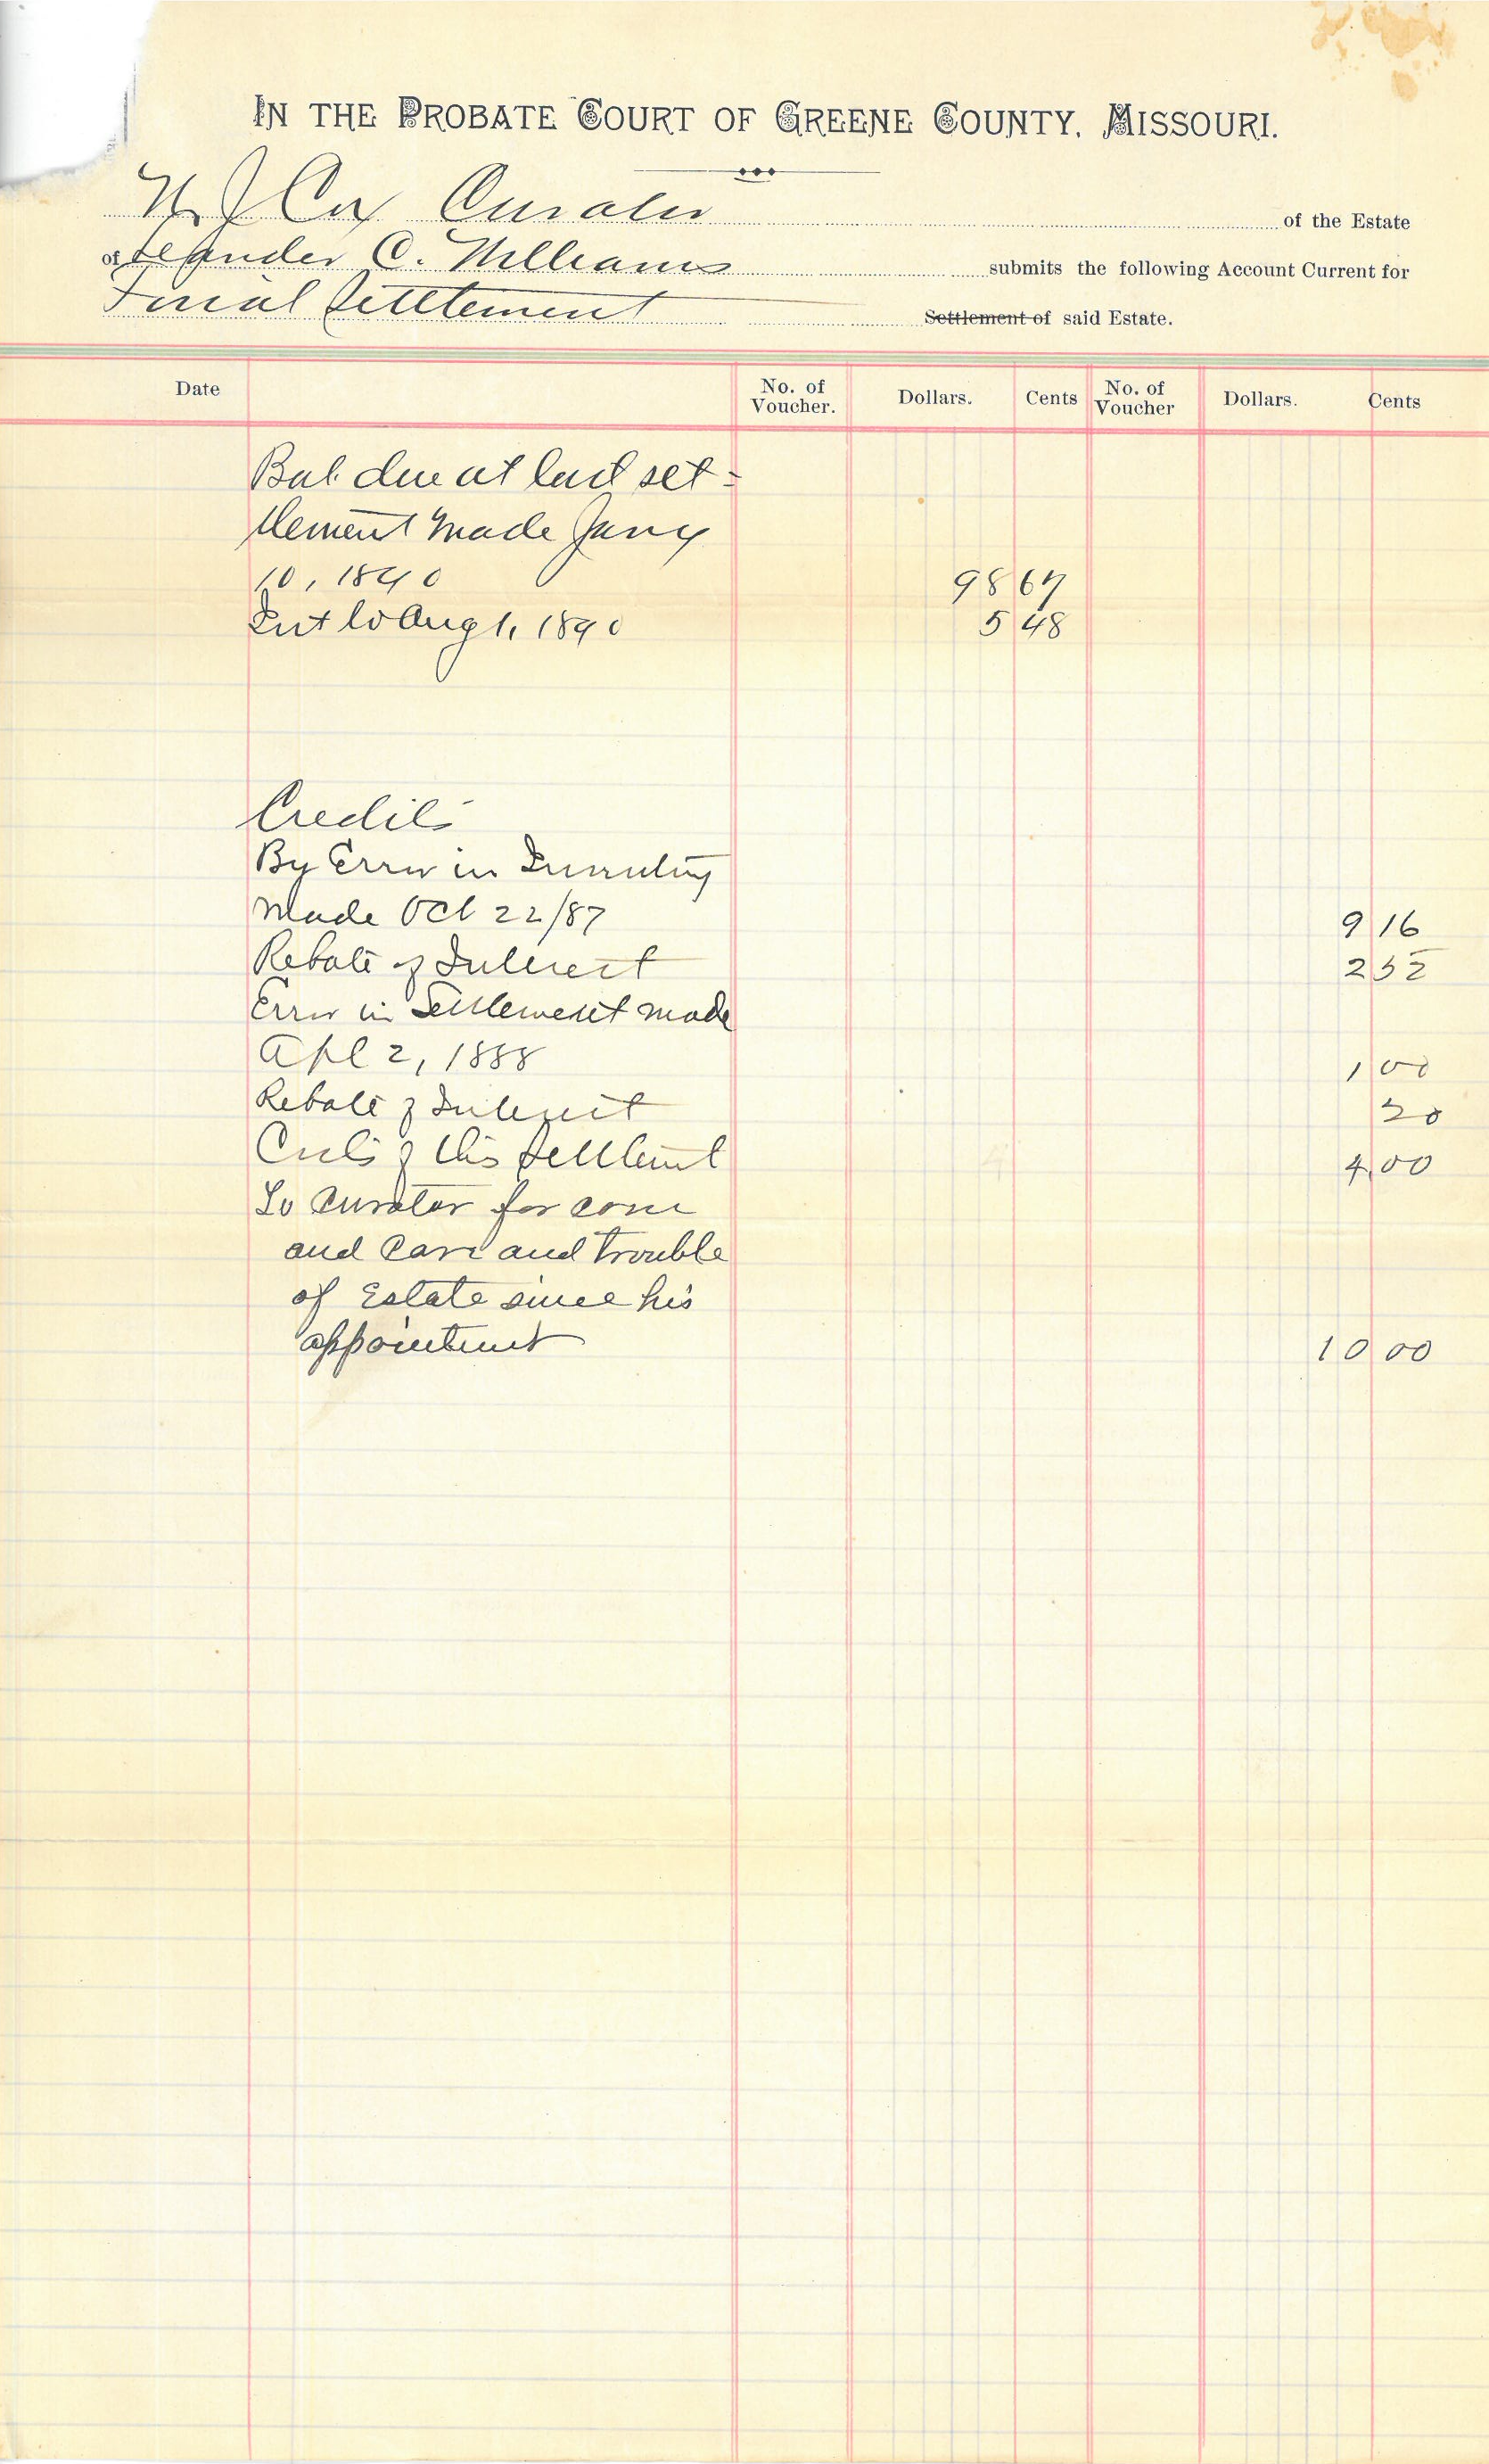 IN THE PROBATE COURT OF GREENE COUNTY, MISSOURI.
Cox Curator of the Estate
of Leander C. Williams submits the following Account Current for
Final Settlement Settlement of said Estate.
Date No. of Voucher. Dollars. Cents No. of Voucher Dollars. Cents
Bal due at last set-
tlement made Jany
10, 1890 98 67
Int to Aug 1, 1890 5 48
Credits
By Error in Inventory
made Oct 22/87 9 16
Rebate of Interest 2 52
Error in Settlement made
Apl 2, 1888 1 00
Rebate of Interest 20
Costs of this Settlemt 4 00
To Curator for com
and Care and trouble
of Estate since his
appointment 10 00